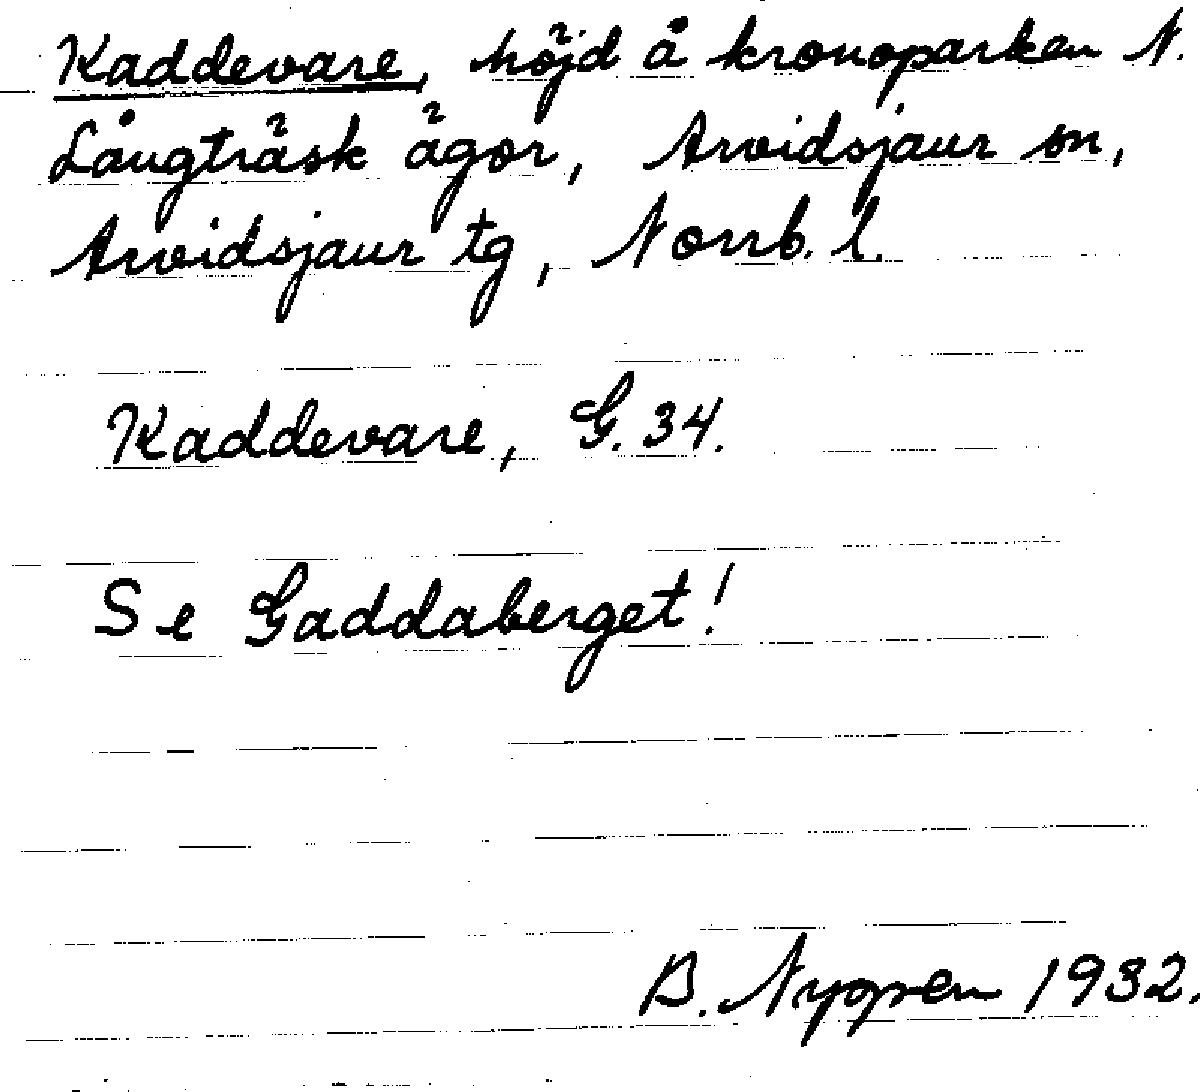 Kaddevare, höjd å kronoparken N.
Långträsk ägor, Arvidsjaur sn,
Arvidsjaur tg, Norrb. l.
Kaddevare, G. 34.
Se Gaddaberget!
B. Nyppen 1932.